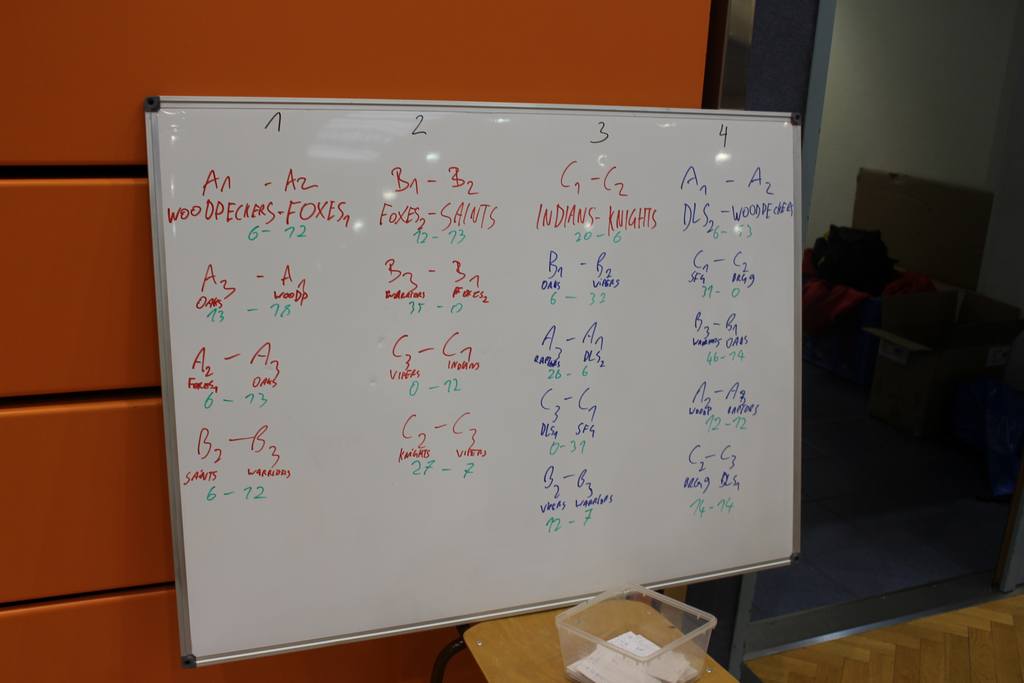 1
A1 - A2
WOODPECKERS - FOXES1
6 - 12
A3 - A1
OAKS WOODP
13 - 18
A2 - A3
FOXES1 OAKS
6 - 13
B2 - B3
SAINTS WARRIORS
6 - 12
2
B1 - B2
FOXES2 - SAINTS
12 - 13
B3 - B1
WARRIORS FOXES2
35 - 0
C3 - C1
VIPERS INDIANS
0 - 12
C2 - C3
KNIGHTS VIPERS
27 - 7
3
C1 - C2
INDIANS - KNIGHTS
20 - 6
B1 - B2
OAKS VIPERS
6 - 32
A3 - A1
RAPTORS DLS2
26 - 6
C3 - C1
DLS1 SFG
0 - 31
B2 - B3
VIPERS WARRIORS
12 - 7
4
A1 - A2
DLS2 - WOODPECKERS
6 - 13
C1 - C2
SFG ORG9
31 - 0
B3 - B1
WARRIORS OAKS
46 - 14
A2 - A3
WOODP RAPTORS
12 - 12
C2 - C3
ORG9 DLS1
14 - 14